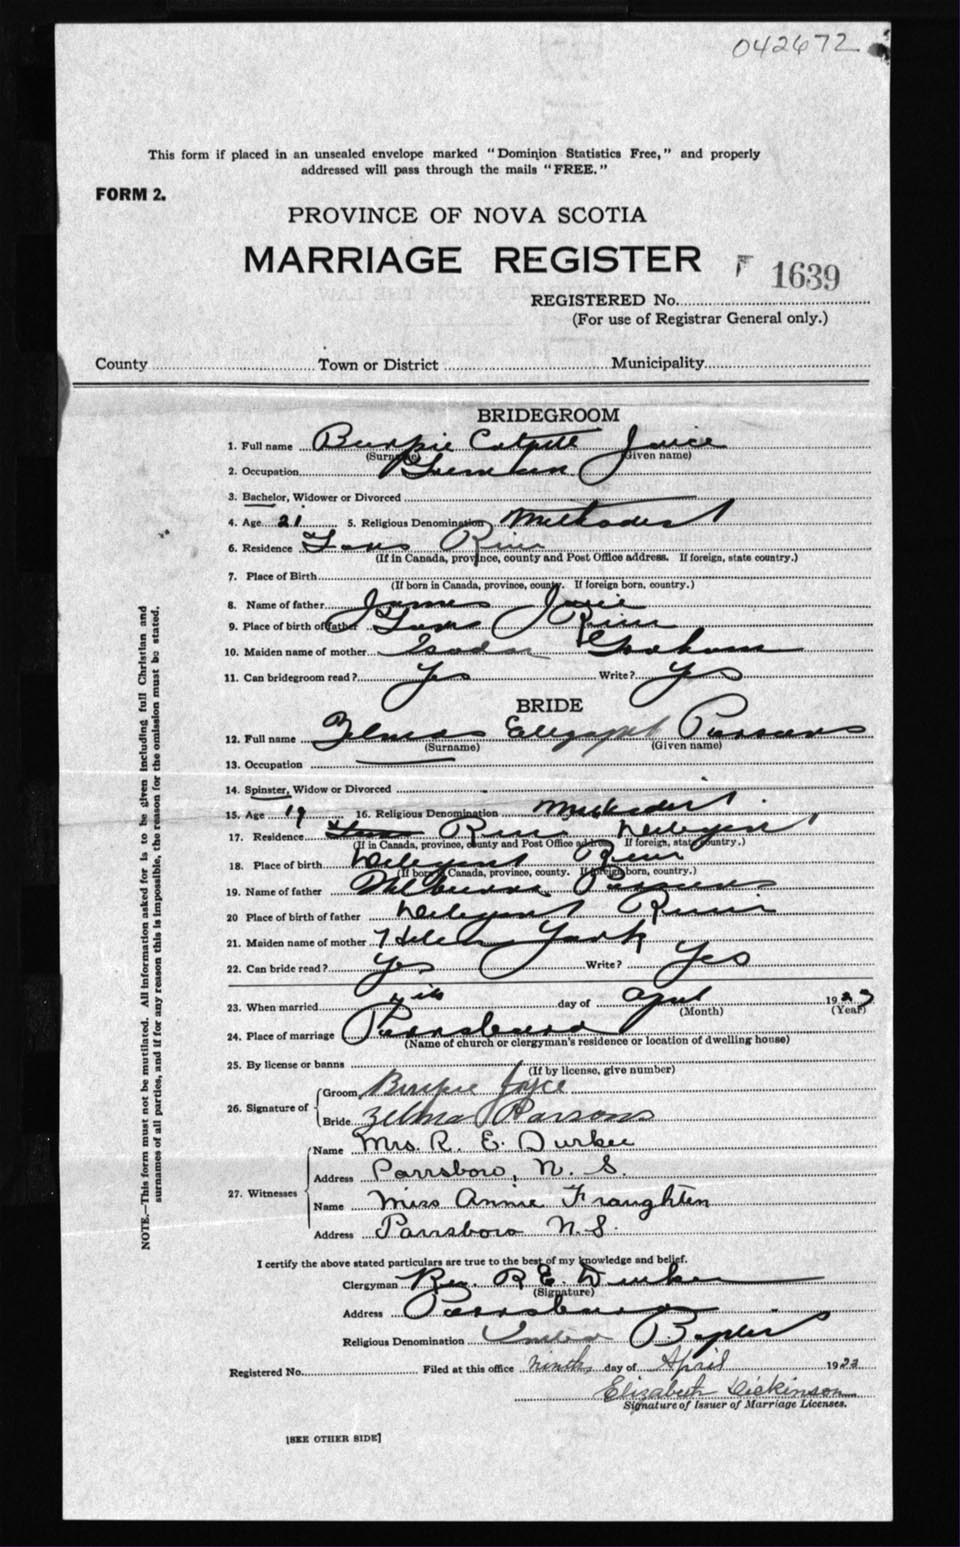 042672
This form if placed in an unsealed envelope marked "Dominion Statistics Free," and properly
addressed will pass through the mails "FREE."
FORM 2.
PROVINCE OF NOVA SCOTIA
MARRIAGE REGISTER
F 1639
REGISTERED No.
(For use of Registrar General only.)
County Town or District Municipality
BRIDEGROOM
1. Full name Burpie Joyce
(Surname) (Given name)
2. Occupation
3. Bachelor, Widower or Divorced
4. Age 21 5. Religious Denomination Methodist
6. Residence River
(If in Canada, province, county and Post Office address. If foreign, state country.)
7. Place of Birth
(If born in Canada, province, county. If foreign born, country.)
8. Name of father James Joyce
9. Place of birth of father River
10. Maiden name of mother Graham
11. Can bridegroom read? Yes Write? Yes
BRIDE
12. Full name Zelma Parsons
(Surname) (Given name)
13. Occupation
14. Spinster, Widow or Divorced
15. Age 19 16. Religious Denomination Methodist
17. Residence River
(If in Canada, province, county and Post Office address If foreign, state country.)
18. Place of birth River
(If born Canada, province, county. If foreign born, country.)
19. Name of father Parsons
20 Place of birth of father River
21. Maiden name of mother Helen York
22. Can bride read? Yes Write? Yes
23. When married day of April 1923
(Month) (Year)
24. Place of marriage Parrsboro
(Name of church or clergyman's residence or location of dwelling house)
25. By license or banns
(If by license, give number)
26. Signature of Groom Burpie Joyce
Bride Zelma Parsons
27. Witnesses Name Mrs. R. E. Durkee
Address Parrsboro, N. S.
Name Miss Annie Fraughten
Address Parrsboro N.S.
I certify the above stated particulars are true to the best of my knowledge and belief.
Clergyman Rev. R E. Durkee
(Signature)
Address Parrsboro
Religious Denomination United Baptist
Registered No. Filed at this office ninth day of April 1923
Elizabeth Dickinson
Signature of Issuer of Marriage Licenses.
[SEE OTHER SIDE]
NOTE.—This form must not be mutilated. All information asked for is to be given including full Christian and
surnames of all parties, and if for any reason this is impossible, the reason for the omission must be stated.